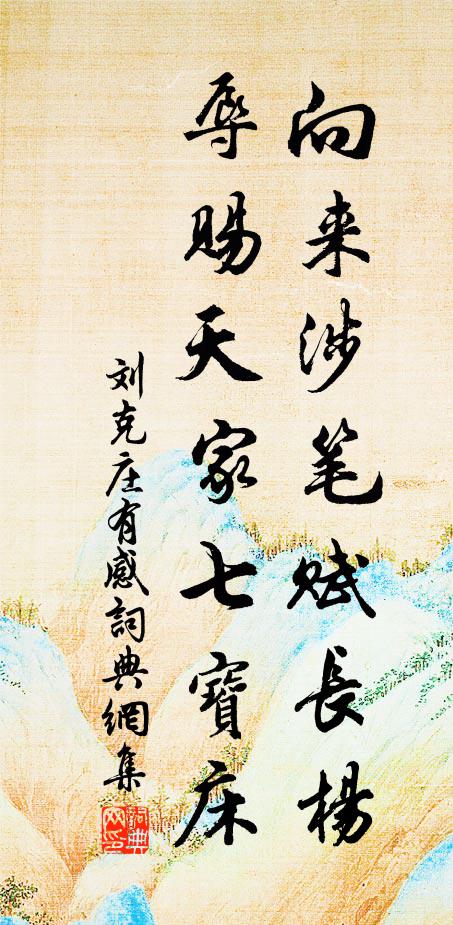 向来涉笔赋長楊
辱赐天家七寶床
刘克庄有感詞典網集
詞典网印